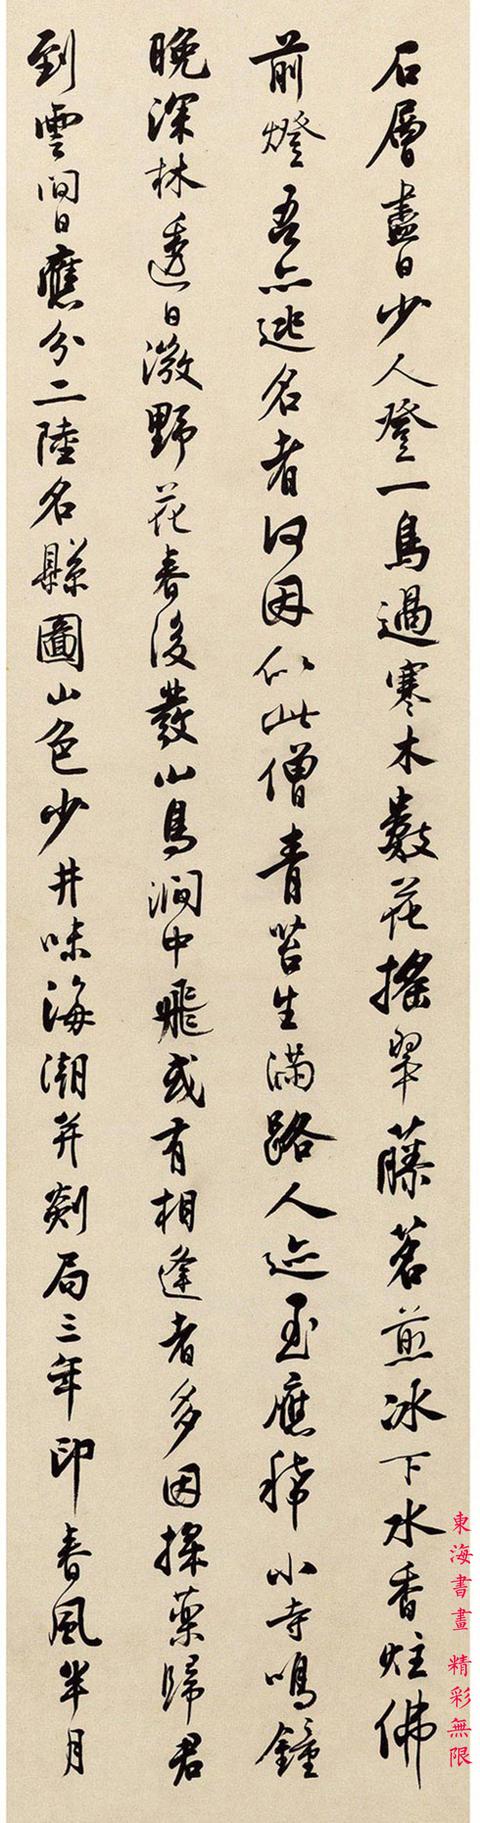 石層盡日少人登一鳥過寒木數花搖翠藤茗煎冰下水香炷佛
前燈吾亦逃名者何因似此僧青苔生滿路人迹至應稀小寺鳴鐘
晚深林透日微野花春後發山鳥澗中飛或有相逢者多因採藥歸君
到雲間日應分二陸名縣圖山色少井味海潮并剡局三年印春風半月
東海書畫 精彩無限